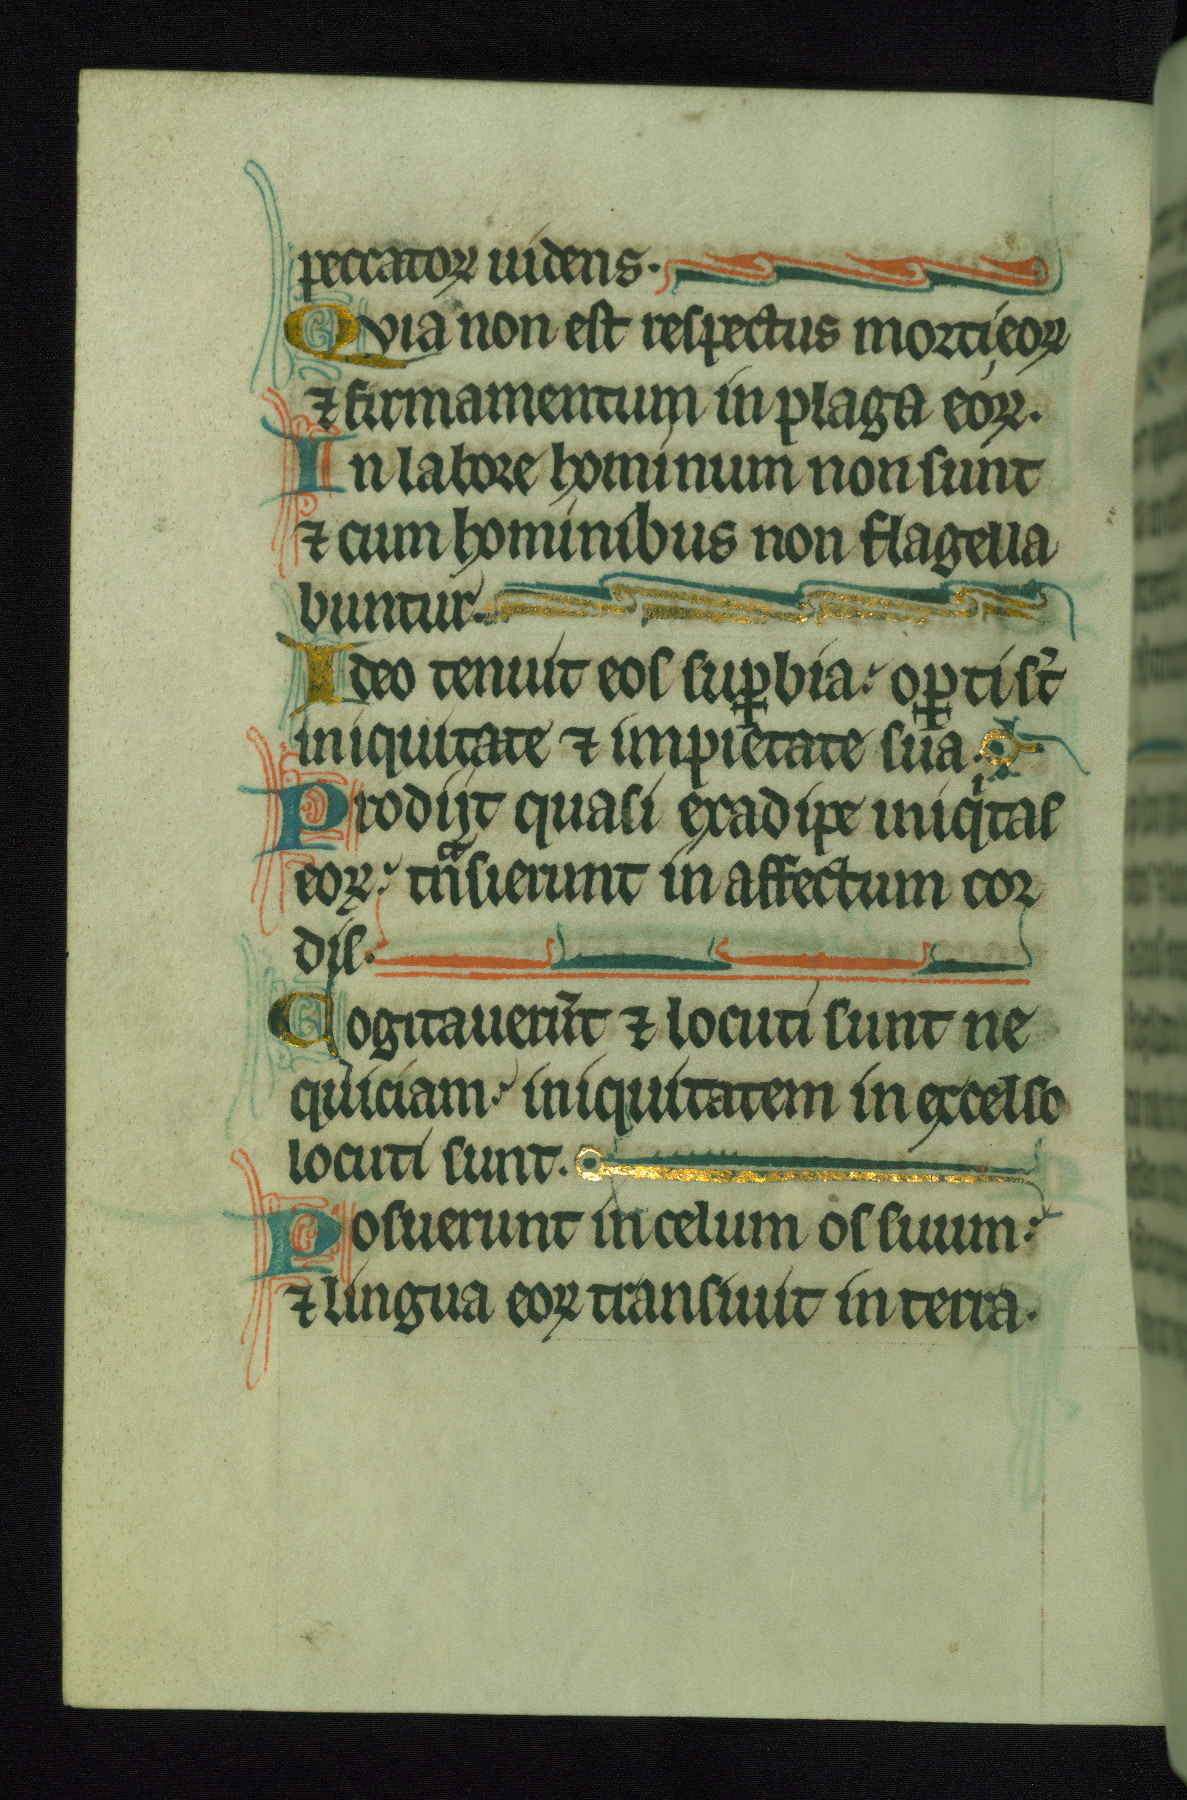 peccatoꝝ uidens.
Quia non est respectus morti eoꝝ
⁊ firmamentum in plaga eoꝝ.
In labore hominum non sunt
⁊ cum hominibus non flagella
buntur.
Ideo tenuit eos suꝑbia: oꝑti st̄
iniquitate ⁊ impietate sua.
Prodijt quasi ex adipe iniqͥtas
eoꝝ: tͣnsierunt in affectum cor
dis.
Cogitauerūt ⁊ locuti sunt ne
quiciam: iniquitatem in excelso
locuti sunt.
Posuerunt in celum os suum:
⁊ lingua eoꝝ transiuit in terra.